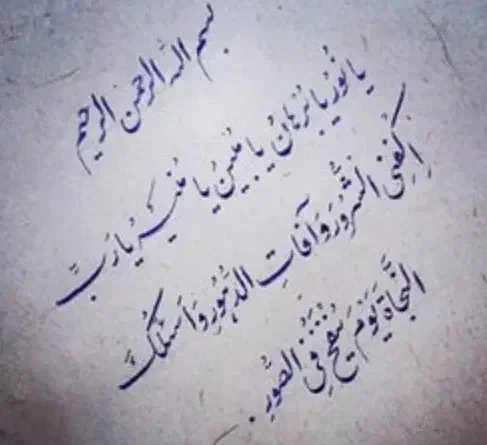 بسم الله الرحمن الرحیم
یا نُورُ یا بُرْهانُ یا مُبینُ یا مُنیرُ یا رَبِّ
اِکْفِنِی الشُّرُورَ وَ آفاتِ الدُّهُورِ وَ اَسْئَلُکَ
النَّجاةَ یَوْمَ یُنْفَخُ فِی الصُّورِ .